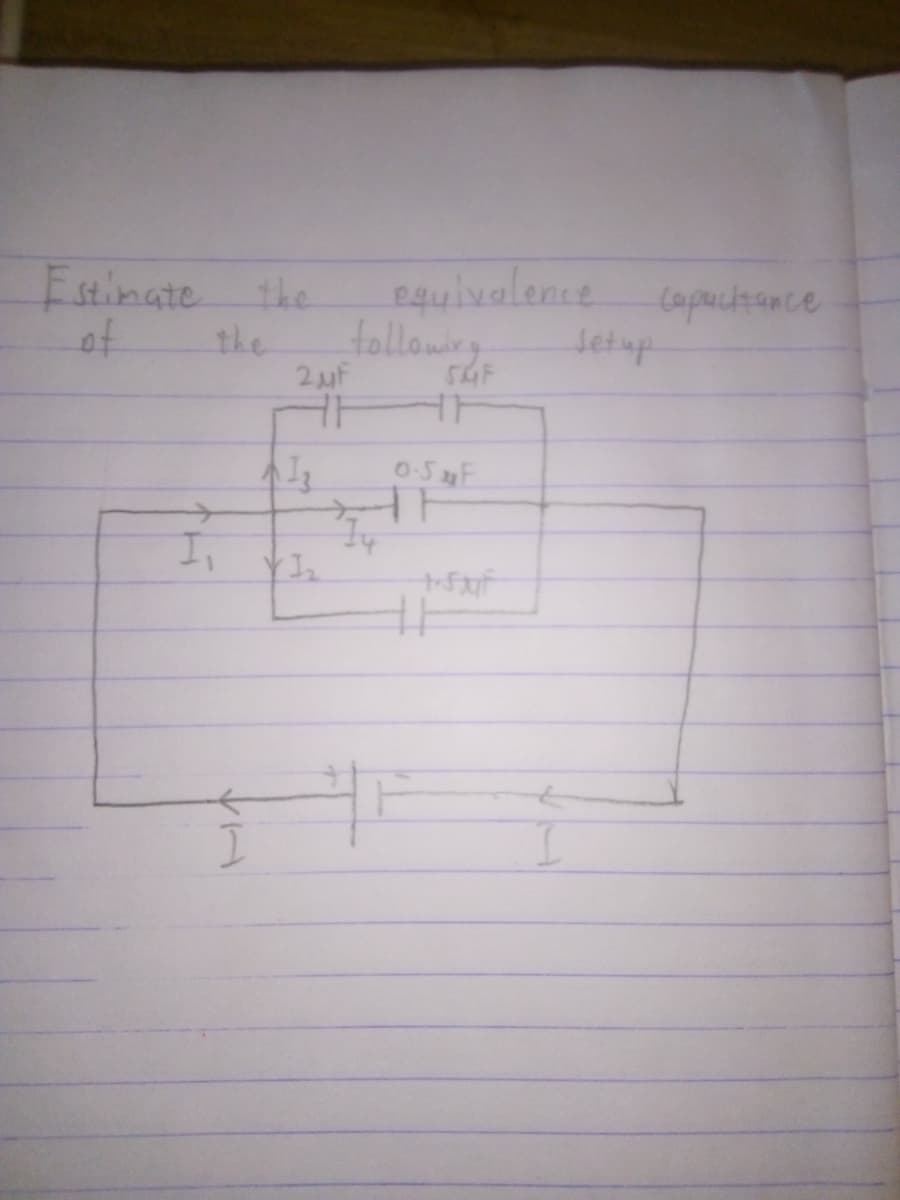 Estimate the equivalence capacitance
of the following setup
2μF 5μF
I3 0.5μF
I1 I4
I2 1.5μF
+ -
I I